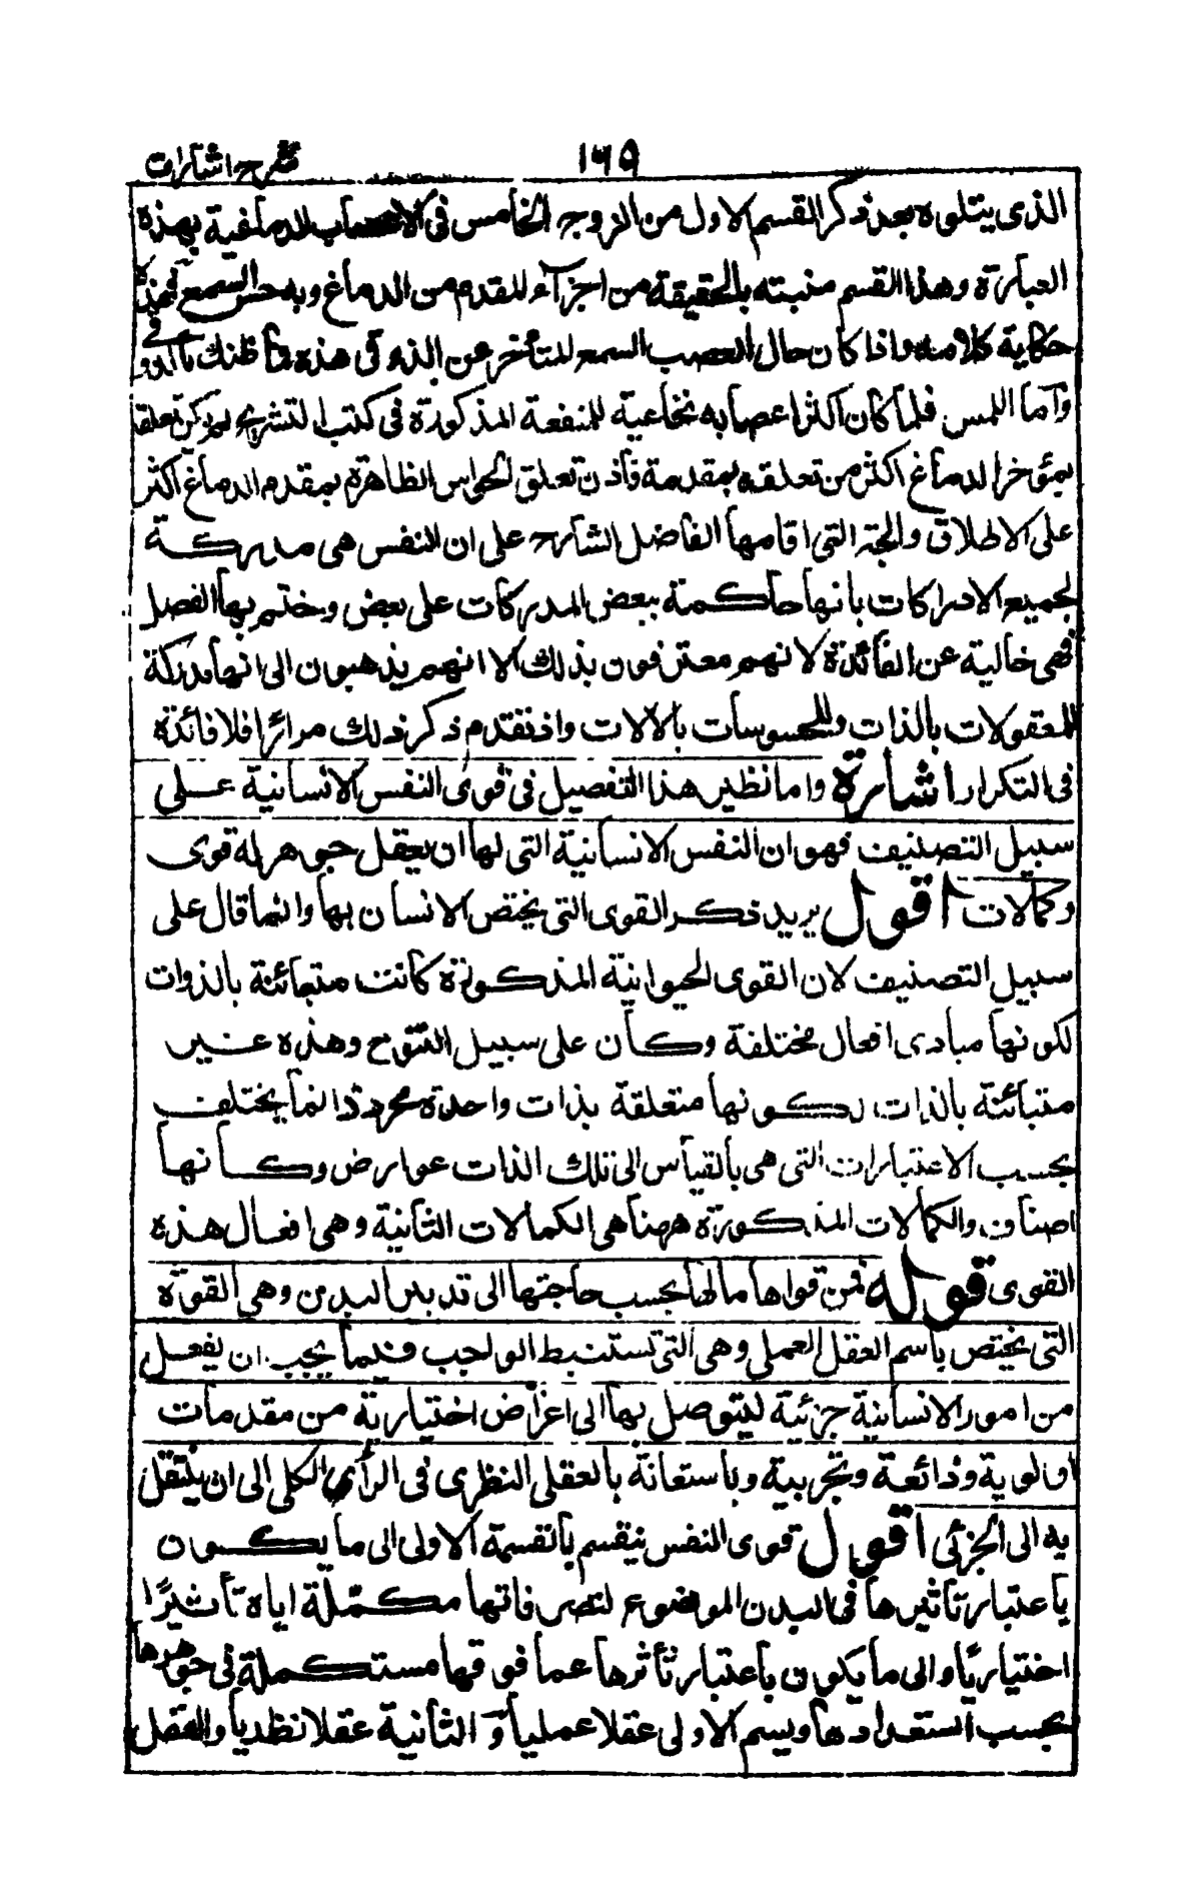 شرح اشارات ١٦٥
الذى يتلوه بعد ذكر القسم الاول من الزوج الخامس فى الاعصاب الدماغية بهذه
العبارة وهذا القسم منبته بالحقيقة من اجزآء المقدم من الدماغ وبه حس السمع فهذا
حكاية كلامه واذا كان حال العصب السمع المتأخر عن الذوقى هذه فما ظنك بالذوقى
وآما اللمس فلما كان اكثر اعصابه نخاعية للمنفعة المذكورة فى كتب التشريح لم يكن تعلقه
بمؤخر الدماغ اكثر من تعلقه بمقدمة فأذن تعلق الحواس الظاهرة بمقدم الدماغ اكثر
على الاطلاق والحجة التى اقامها الفاضل الشارح على ان النفس هى مدركة
لجميع الادراكات بانها حاكمة ببعض المدركات على بعض وختم بها الفصل
فهى خالية عن الفائدة لانهم معترفون بذلك الا انهم يذهبون الى انها مدركة
للمعقولات بالذات وللمحسوسات بالآلات واذ تقدم ذكر ذلك مرارا فلا فائدة
فى التكرار اشارة واما نظير هذا التفصيل فى قوى النفس الانسانية على
سبيل التصنيف فهو ان النفس الانسانية التى لها ان يعقل جوهر له قوى
وكمالات اقول يريد ذكر القوى التى يختص الانسان بها وانما قال على
سبيل التصنيف لان القوى الحيوانية المذكورة كانت متبائنة بالذوات
لكونها مبادى افعال مختلفة وكان على سبيل التنوع وهذه غير
متبائنة بالذات لكونها متعلقة بذات واحدة مجردة انما يختلف
بحسب الاعتبارات التى هى بالقياس الى تلك الذات عوارض وكأنها
اصناف والكمالات المذكورة ههنا هى الكمالات الثانية وهى افعال هذه
القوى قوله فمن قواها مالها بحسب حاجتها الى تدبير البدن وهى القوة
التى يختص باسم العقل العملى وهى التى تستنبط الواجب فيما يجب ان يفعل
من امور الانسانية جزئية ليتوصل بها الى اغراض اختيارية من مقدمات
اولوية وذائعة وتجربية وباستعانة بالعقل النظرى فى الرأى الكلى الى ان ينتقل
به الى الجزئى اقول قوى النفس ينقسم بالقسمة الاولى الى ما يكون
باعتبار تاثيرها فى البدن الموضوع لتصرفاتها مكملة اياه تأثيرًا
اختياريًا والى ما يكون باعتبار تأثرها عما فوقها مستكملة فى جوهرها
بحسب استعدادها ويسم الاولى عقلا عمليا و الثانية عقلا نظريا والعقل